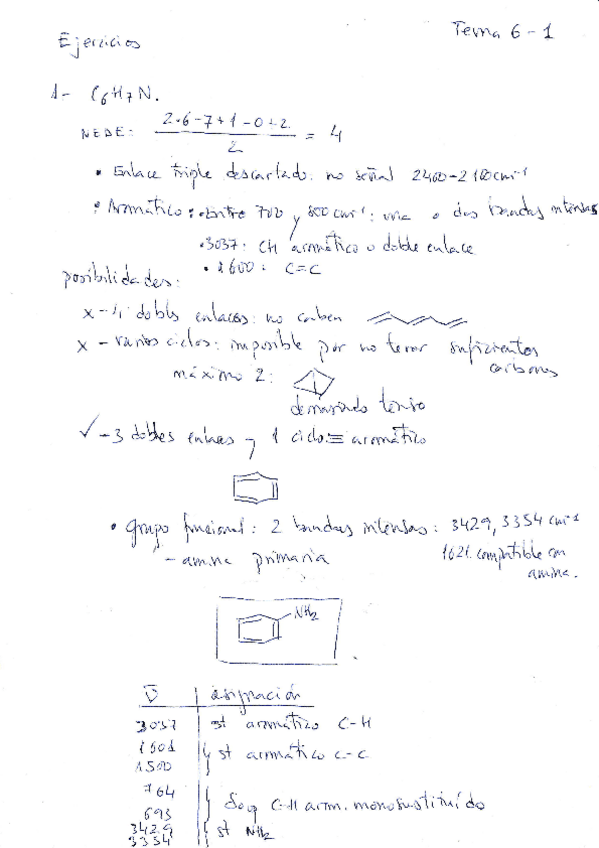 Tema 6-1
Ejercicios
1- C6H7N.
NEDE: 2·6-7+1-0+2 / 2 = 4
• Enlace triple descartado: no señal 2400-2100cm-1
• Aromático: • Entre 700 y 800 cm-1: una o dos bandas intensas
• 3037: CH aromático o doble enlace
• 1600: C=C
posibilidades:
x - 4 dobles enlaces: no caben
x - varios ciclos: imposible por no tener suficientes
carbonos
máximo 2:
demasiado tenso
✓ - 3 dobles enlaces y 1 ciclo ≡ aromático
• grupo funcional: 2 bandas intensas: 3429, 3354 cm-1
- amina primaria
1621 compatible con
amina.
NH2
ν̅ | asignación
3037 | st aromático C-H
1601
1500 } st aromático C-C
764
693 } δoop C-H arom. monosustituído
3429
3354 } st NH2